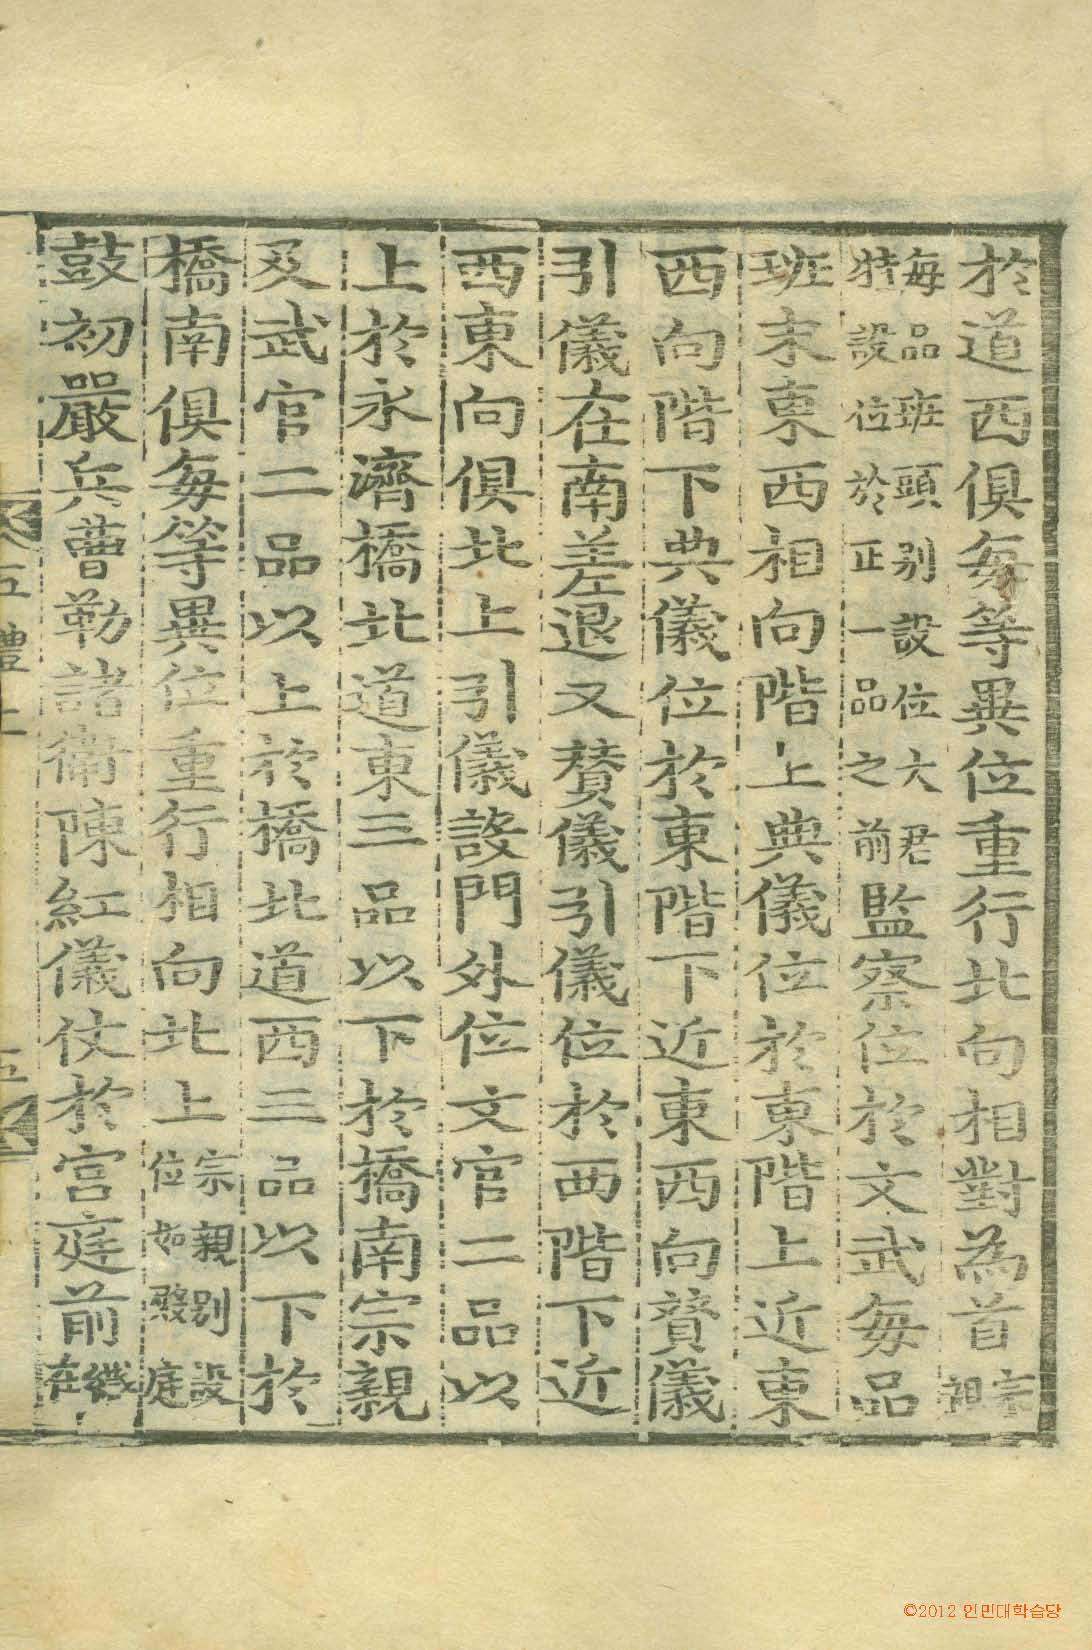 於道西俱每等異位重行北向相對為首宗親
每品班頭别設位大君特設位於正一品之前監察位於文武每品
班末東西相向階上典儀位於東階上近東
西向階下典儀位於東階下近東西向賛儀
引儀在南差退又賛儀引儀位於西階下近
西東向俱北上引儀設門外位文官二品以
上於永濟橋北道東三品以下於橋南宗親
及武官二品以上於橋北道西三品以下於
橋南俱每等異位重行相向北上宗親别設位如殿庭
鼓初嚴兵曹勒諸衛陳紅儀仗於宮庭前在
五禮
五
©2012 인민대학습당